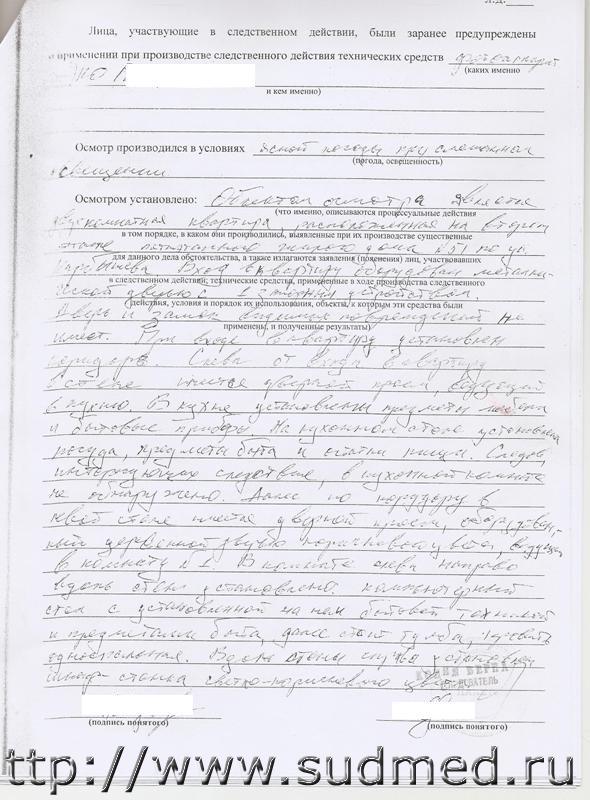 Лица, участвующие в следственном действии, были заранее предупреждены
о применении при производстве следственного действия технических средств фотоаппарат
(каких именно
и кем именно)
Осмотр производился в условиях ясной погоды при смешанном
(погода, освещенность)
освещении.
Осмотром установлено: Объектом осмотра является
(что именно, описываются процессуальные действия
двухкомнатная квартира, расположенная на втором
в том порядке, в каком они производились, выявленные при их производстве существенные
этаже пятиэтажного жилого дома №51 по ул.
для данного дела обстоятельства, а также излагаются заявления (пояснения) лиц, участвовавших
Вход в квартиру оборудован металли-
в следственном действии; технические средства, примененные в ходе производства следственного
ческой дверью с устройством.
действия, условия и порядок их использования, объекты, к которым эти средства были
Дверь и замок видимых повреждений не
применены, и полученные результаты)
имеет. При входе в квартиру установлен
коридор. Слева от входа в квартиру
в стене имеется дверной проем, ведущий
в кухню. В кухне установлены предметы мебели
и бытовые приборы. На кухонном столе установлена
посуда, предметы быта и остатки пищи. Следов,
интересующих следствие, в кухонной комнате
не обнаружено. Далее по коридору в
левой стене имеется дверной проем, оборудован-
ный деревянной дверью коричневого цвета, ведущей
в комнату №1. В комнате слева направо
вдоль стены установлено: компьютерный
стол с установленной на нем бытовой техникой
и предметами быта, далее стоит тумба, кровать
односпальная. Вдоль стены справа установлен
шкаф-стенка светло-коричневого цвета.
СЛЕДОВАТЕЛЬ
(подпись понятого)
(подпись понятого)
ttp://www.sudmed.ru